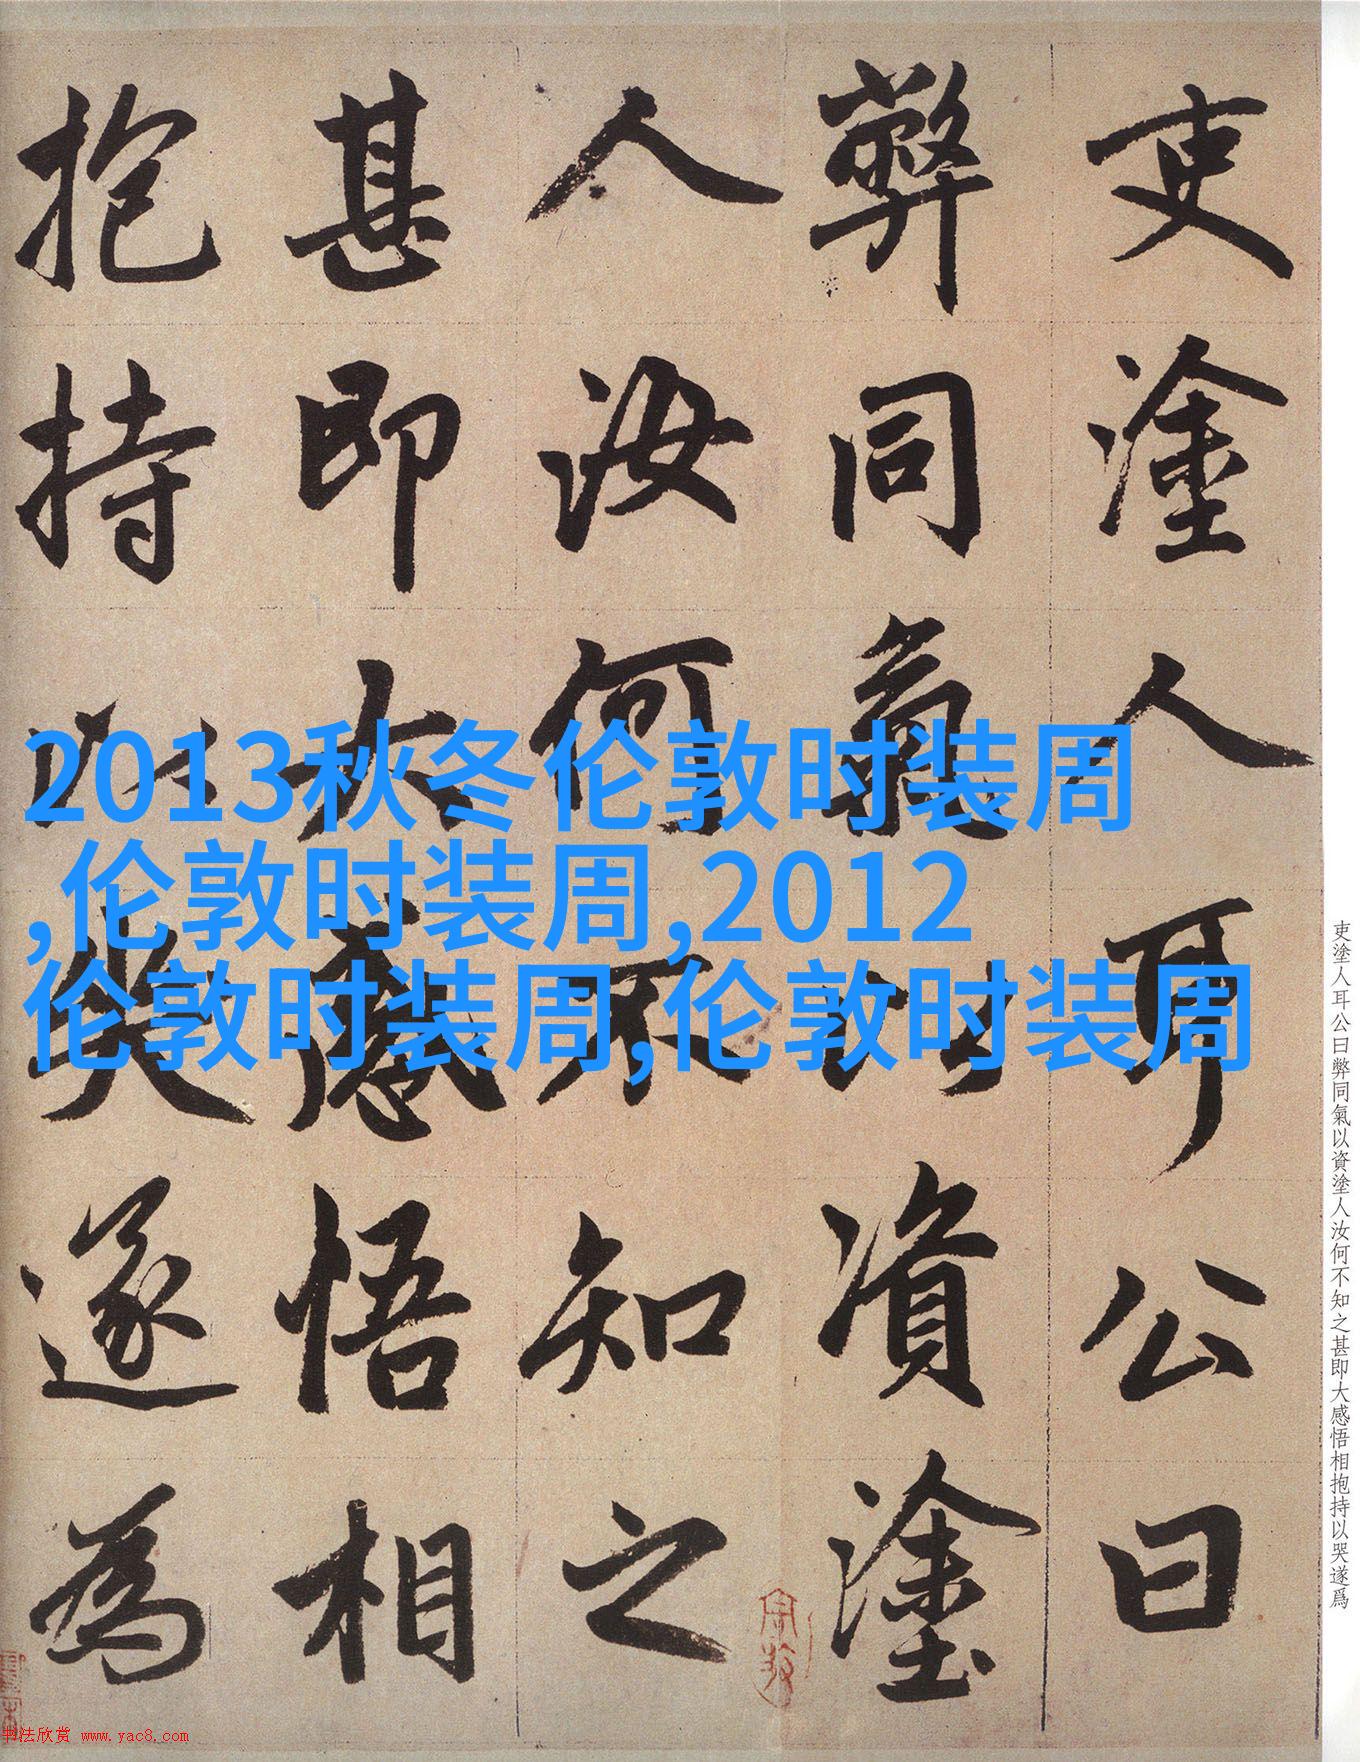 吏塗人耳公曰
弊同氣以資塗
人汝何不知之
甚即大感悟相
抱持以哭遂為
2013秋冬伦敦时装周
,伦敦时装周,2012
伦敦时装周,伦敦时装周
吏塗人耳公曰弊同氣以資塗人汝何不知之甚即大感悟相抱持以哭遂爲
书法欣赏 www.yac8.com